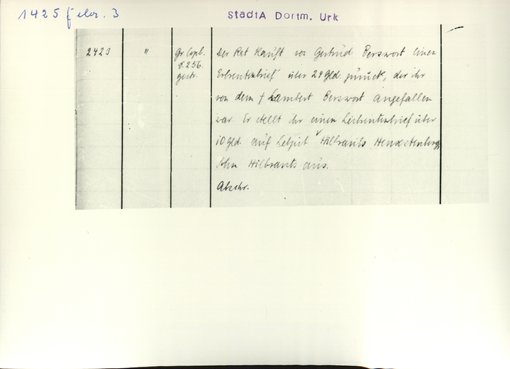 1425 febr. 3
StadtA Dortm. Urk
2423 " Gr. Copb. Der Rat kauft von Gertrud Berswort einen
f. 256. Erbrentenbrief über 24 Gld. zurück, der ihr
gestr. von dem † Lambert Berswort angefallen
war. Er stellt ihr einen Leibrentenbrief über
10 Gld. auf Lebzeit Hilbrants
Sohn Hilbrants aus.
Abschr.